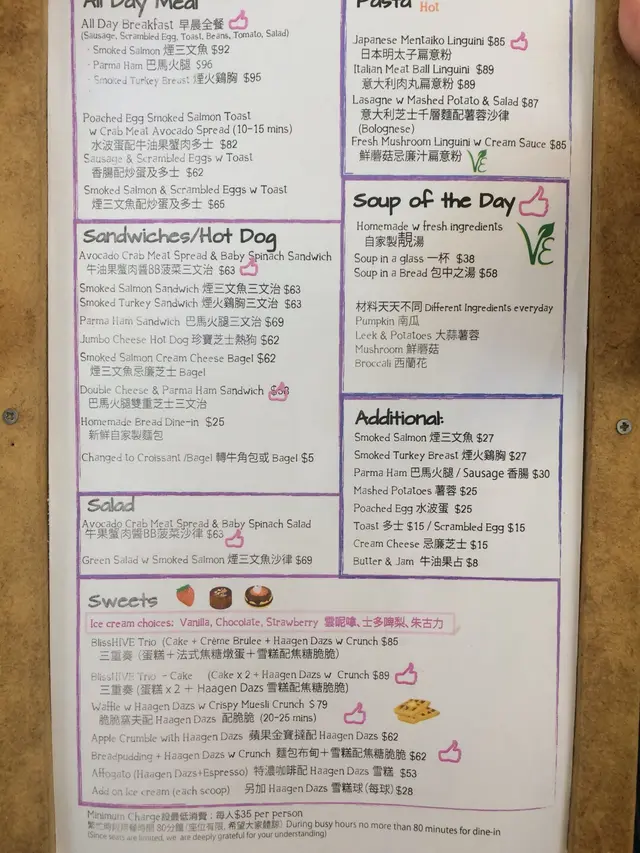 All Day Meal
All Day Breakfast 早晨全餐
(Sausage, Scrambled Egg, Toast, Beans, Tomato, Salad)
· Smoked Salmon 煙三文魚 $92
· Parma Ham 巴馬火腿 $96
· Smoked Turkey Breast 煙火鷄胸 $95
Poached Egg Smoked Salmon Toast
w Crab Meat Avocado Spread (10-15 mins)
水波蛋配牛油果蟹肉多士 $82
Sausage & Scrambled Eggs w Toast
香腸配炒蛋及多士 $62
Smoked Salmon & Scrambled Eggs w Toast
煙三文魚配炒蛋及多士 $65
Sandwiches/Hot Dog
Avocado Crab Meat Spread & Baby Spinach Sandwich
牛油果蟹肉醬BB菠菜三文治 $63
Smoked Salmon Sandwich 煙三文魚三文治 $63
Smoked Turkey Sandwich 煙火鷄胸三文治 $63
Parma Ham Sandwich 巴馬火腿三文治 $69
Jumbo Cheese Hot Dog 珍寶芝士熱狗 $62
Smoked Salmon Cream Cheese Bagel $62
煙三文魚忌廉芝士 Bagel
Double Cheese & Parma Ham Sandwich
巴馬火腿雙重芝士三文治
Homemade Bread Dine-in $25
新鮮自家製麵包
Changed to Croissant /Bagel 轉牛角包或 Bagel $5
Salad
Avocado Crab Meat Spread & Baby Spinach Salad
牛果蟹肉醬BB菠菜沙律 $63
Green Salad w Smoked Salmon 煙三文魚沙律 $69
Pasta Hot
Japanese Mentaiko Linguini $85
日本明太子扁意粉
Italian Meat Ball Linguini $89
意大利肉丸扁意粉 $89
Lasagne w Mashed Potato & Salad $87
意大利芝士千層麵配薯蓉沙律
(Bolognese)
Fresh Mushroom Linguini w Cream Sauce $85
鮮蘑菇忌廉汁扁意粉 VE
Soup of the Day
Homemade w fresh ingredients
自家製靚湯 VE
Soup in a glass 一杯 $38
Soup in a Bread 包中之湯 $58
材料天天不同 Different Ingredients everyday
Pumpkin 南瓜
Leek & Potatoes 大蒜薯蓉
Mushroom 鮮蘑菇
Broccali 西蘭花
Additional:
Smoked Salmon 煙三文魚 $27
Smoked Turkey Breast 煙火鷄胸 $27
Parma Ham 巴馬火腿 / Sausage 香腸 $30
Mashed Potatoes 薯蓉 $25
Poached Egg 水波蛋 $25
Toast 多士 $15 / Scrambled Egg $15
Cream Cheese 忌廉芝士 $15
Butter & Jam 牛油果占 $8
Sweets
Ice cream choices: Vanilla, Chocolate, Strawberry 雲呢嗱、士多啤梨、朱古力
BlissHIVE Trio (Cake + Crème Brulee + Haagen Dazs w Crunch $85
三重奏 (蛋糕+法式焦糖燉蛋+雪糕配焦糖脆脆)
BlissHIVE Trio - Cake (Cake x 2 + Haagen Dazs w Crunch $89
三重奏 (蛋糕 x 2 + Haagen Dazs 雪糕配焦糖脆脆)
Waffle w Haagen Dazs w Crispy Muesli Crunch $79
脆脆窩夫配 Haagen Dazs 配脆脆 (20-25 mins)
Apple Crumble with Haagen Dazs 蘋果金寶撻配 Haagen Dazs $62
Breadpudding + Haagen Dazs w Crunch 麵包布甸+雪糕配焦糖脆脆 $62
Affogato (Haagen Dazs+Espresso) 特濃咖啡配 Haagen Dazs 雪糕 $53
Add on Ice cream (each scoop) 另加 Haagen Dazs 雪糕球(每球) $28
Minimum Charge設最低消費：每人$35 per person
80分鐘 (座位有限, 希望大家體諒) During busy hours no more than 80 minutes for dine-in
(Since seats are limited, we are deeply grateful for your understanding)